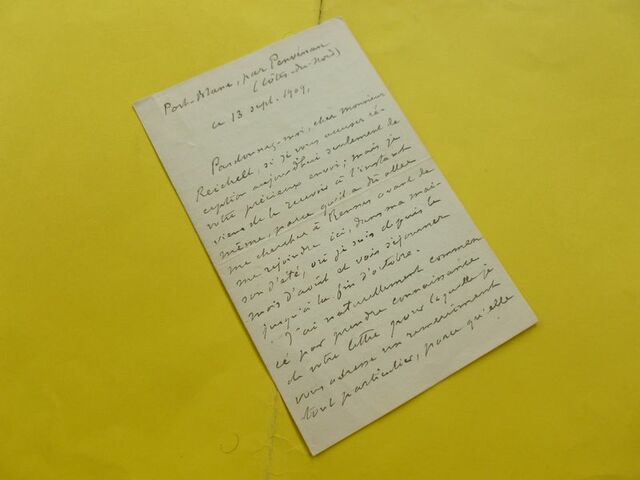 Port-Blanc, par Penvénan
(Côtes-du-Nord)
ce 13 sept. 1909,
Pardonnez-moi, cher Monsieur
Reichelt, si je vous accuse ré-
ception aujourd'hui seulement de
votre précieux envoi; mais je
viens de le recevoir à l'instant
même, parce qu'il a dû aller
me chercher à Rennes avant de
me rejoindre ici, dans ma mai-
son d'été, où je suis depuis le
mois d'août et vais séjourner
jusqu'à la fin d'octobre.
J'ai naturellement commen-
cé par prendre connaissance
de votre lettre pour laquelle je
vous adresse un remerciement
tout particulier, parce qu'elle